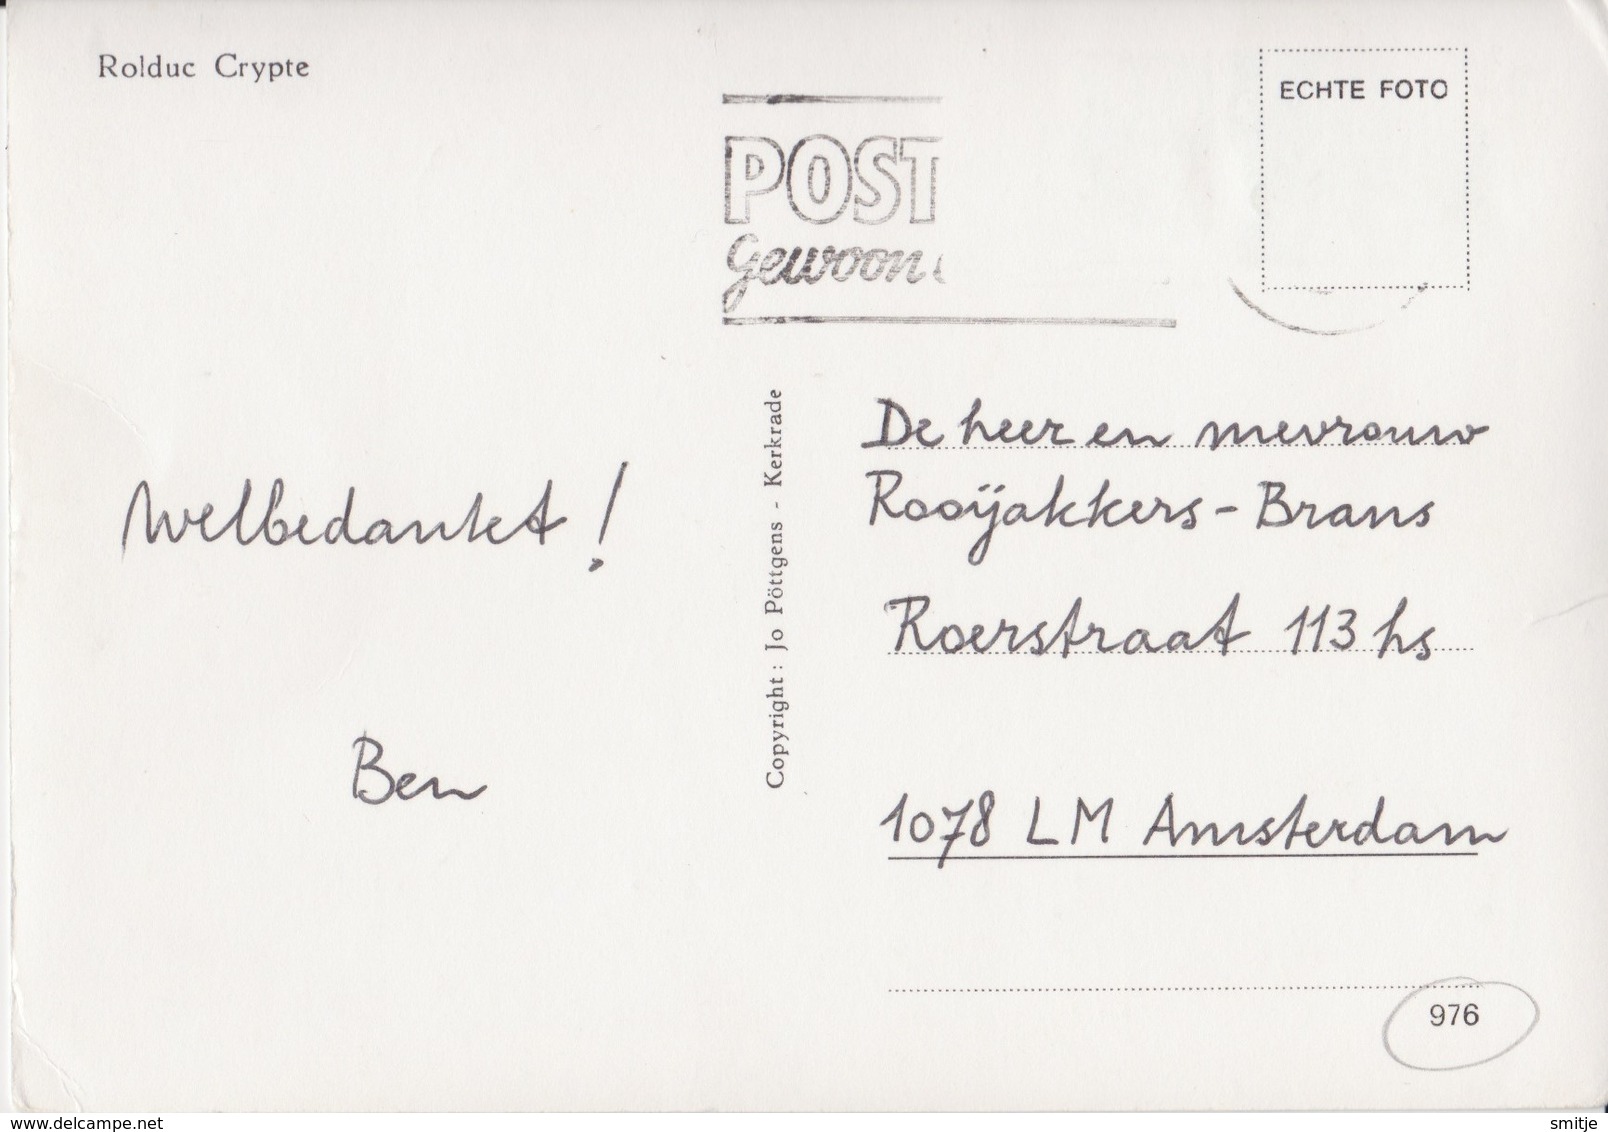 Rolduc Crypte
ECHTE FOTO
POST
Gewoon
Copyright : Jo Pöttgens - Kerkrade
Welbedankt!
Ben
De heer en mevrouw
Rooijakkers-Brans
Roerstraat 113 hs
1078 LM Amsterdam
976
delcampe.net
smitje